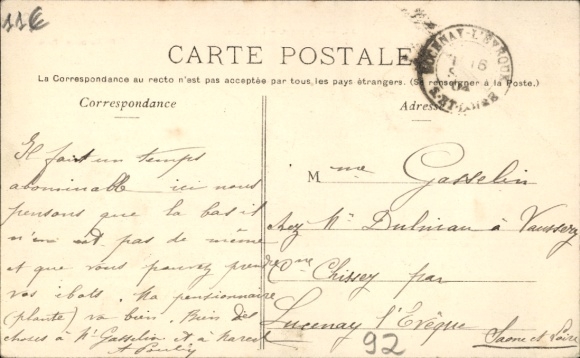 11€
CARTE POSTALE
La Correspondance au recto n'est pas acceptée par tous les pays étrangers. (Se renseigner à la Poste.)
Correspondance
Adresse
LUCENAY-L'ÉVÊQUE
16
S.-ET-LOIRE
Il fait un temps
abominable ici nous
pensons que là bas il
n'en est pas de même
et que vous pouvez prendre
vos
Ma pensionnaire
(plante) va bien. Bien des
choses à Mr Gasselin et à
Mme Gasselin
chez Mr à
Cne Chissey par
Lucenay l'Evêque
Saone et Loire
92